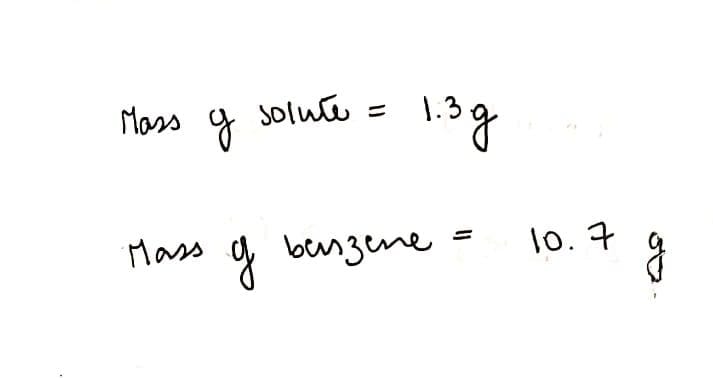 Mass of solute = 1.3 g
Mass of benzene = 10.7 g